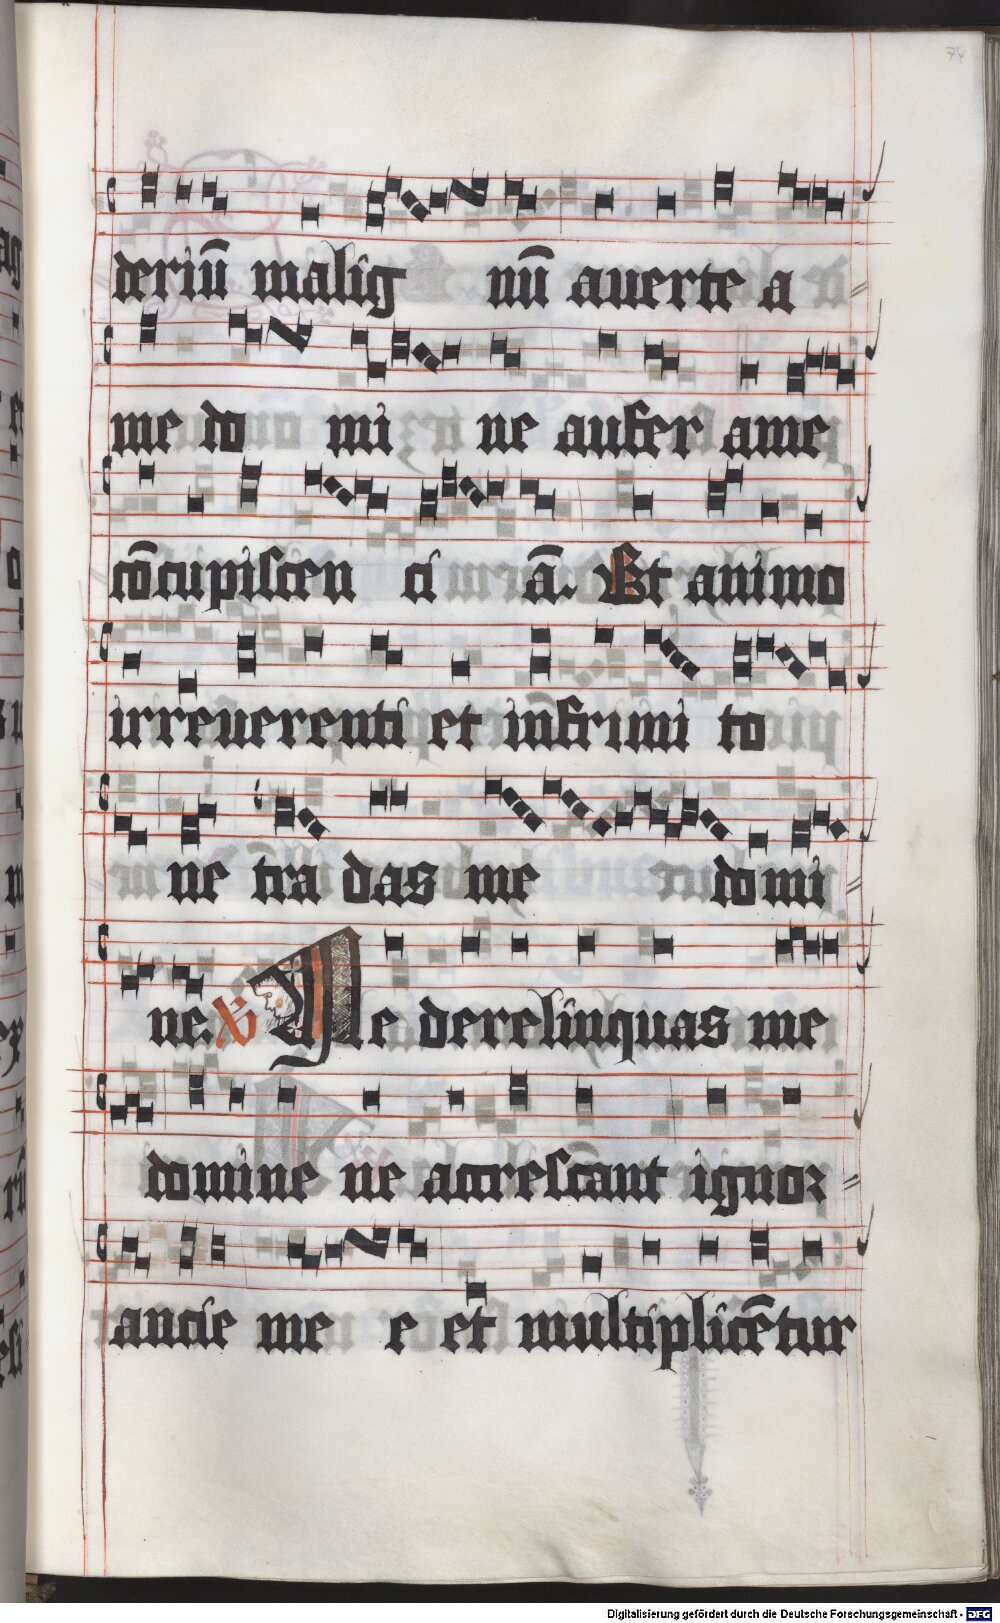 74
deriū malig nū auerte a
me do mi ne aufer ame
cōcupiscen ci ā. Et animo
irreuerenti et infrimi to
ne tra das me domi
ne. Ne derelinquas me
domine ne accrescāt ignor
ancie me e et multiplicētur
Digitalisierung gefördert durch die Deutsche Forschungsgemeinschaft - DFG